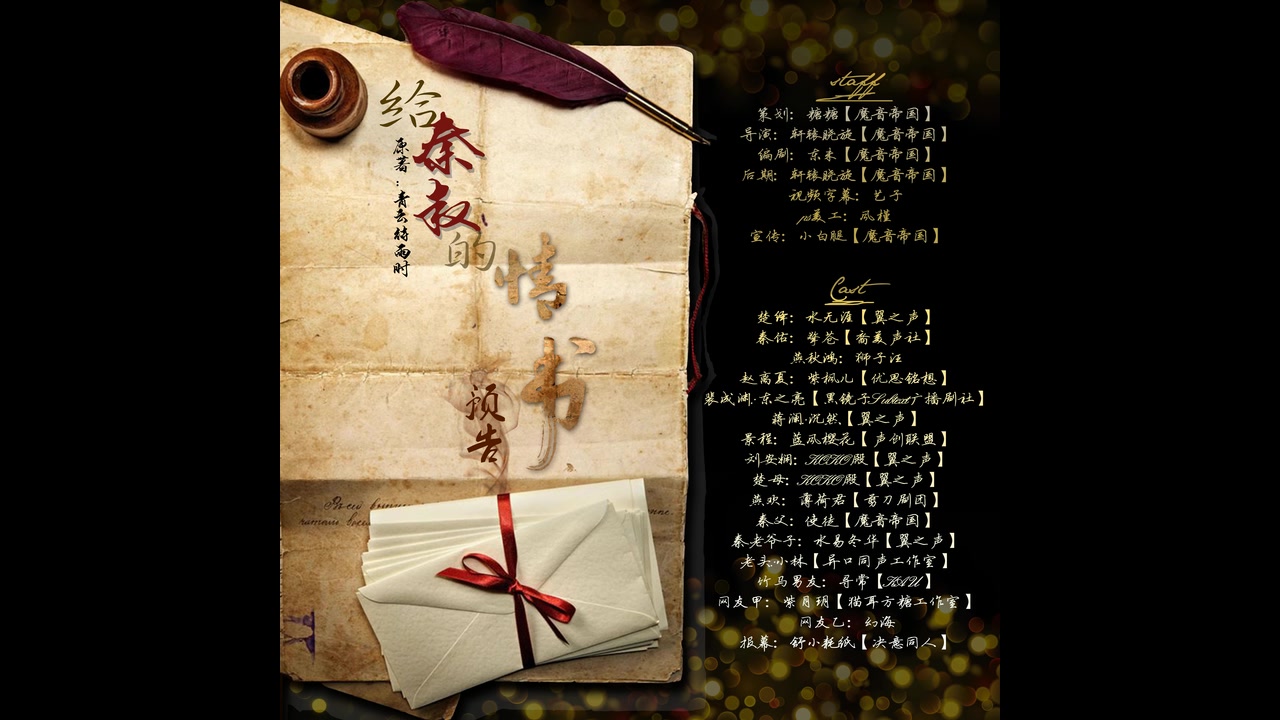 给秦叔的情书
原著：青云待雨时
预告
staff
策划：糖糖【魔音帝国】
导演：轩辕晓旋【魔音帝国】
编剧：京未【魔音帝国】
后期：轩辕晓旋【魔音帝国】
视频字幕：艺子
美工：风槿
宣传：小白腿【魔音帝国】
Cast
楚绎：水无涯【翼之声】
秦佑：擎苍【裔美声社】
燕秋鸿：狮子汪
赵离夏：紫枫儿【优思铭想】
裴成渊·京之亮【黑镜子Subtext广播剧社】
蒋澜·沉然【翼之声】
景程：蓝风樱花【声创联盟】
刘安娴：KOKO殿【翼之声】
楚母：KOKO殿【翼之声】
燕欢：薄荷君【剪刀剧团】
秦父：使徒【魔音帝国】
秦老爷子：水易冬华【翼之声】
老头·小林【异口同声工作室】
竹马男友：寻常【KAU】
网友甲：紫月玥【猫耳方糖工作室】
网友乙：幻海
报幕：舒小耗纸【决意同人】